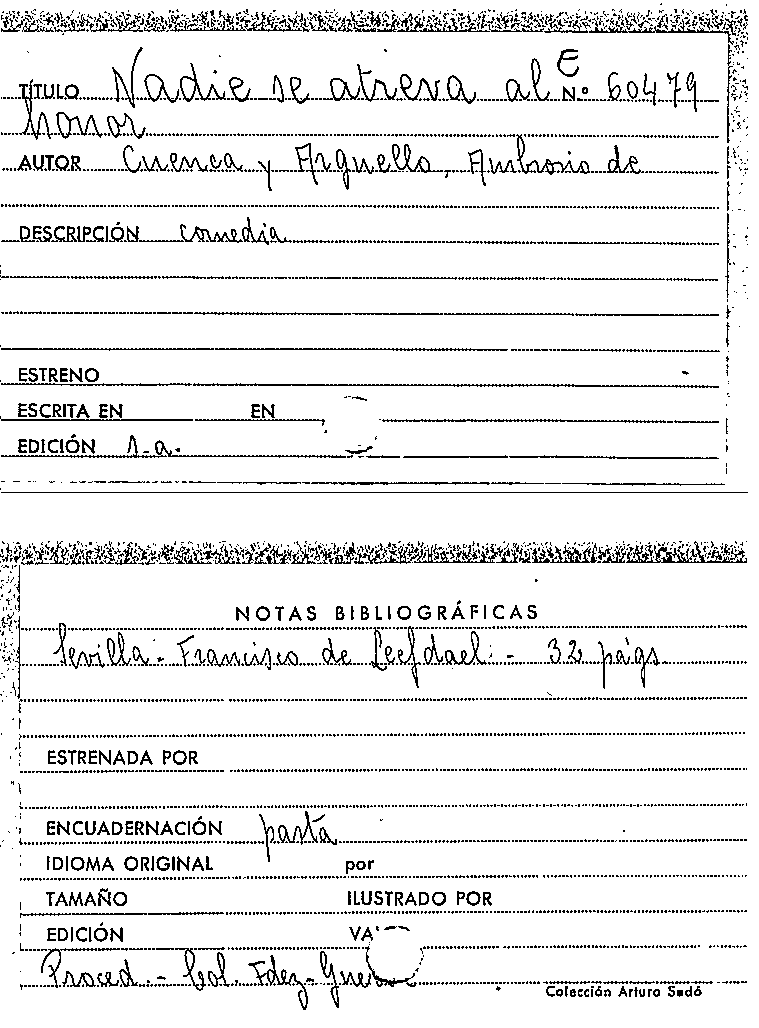 E
TÍTULO Nadie se atreva al N.º 60479
honor
AUTOR Cuenca y Arguello, Ambrosio de
DESCRIPCIÓN comedia
ESTRENO
ESCRITA EN EN
EDICIÓN s.a.
NOTAS BIBLIOGRÁFICAS
Sevilla.- Francisco de Leefdael.- 32 págs.
ESTRENADA POR
ENCUADERNACIÓN pasta
IDIOMA ORIGINAL por
TAMAÑO ILUSTRADO POR
EDICIÓN VA
Proced.- Col. Fdez-Gue
Colección Arturo Sedó